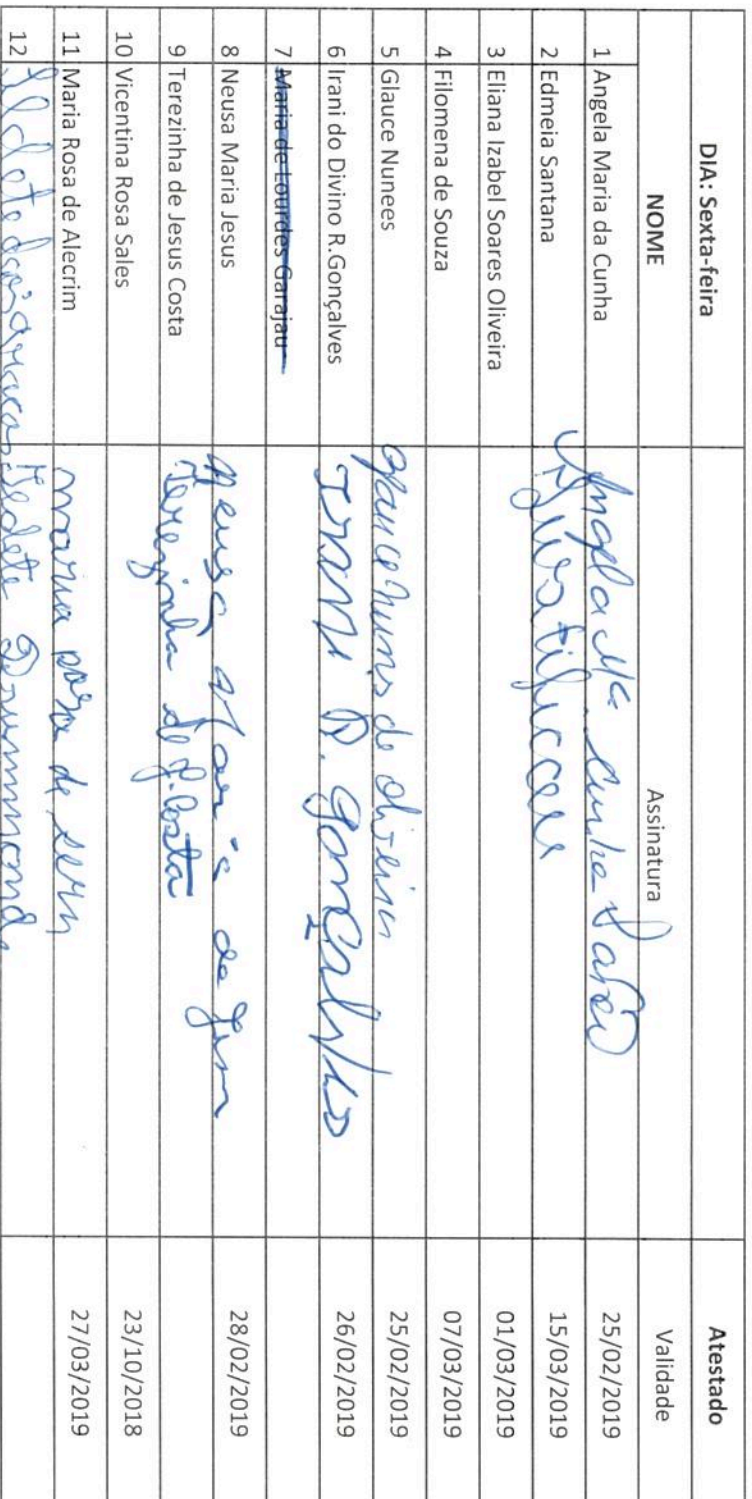 DIA: Sexta-feira Atestado
NOME Assinatura Validade
1 Angela Maria da Cunha Angela Mª Cunha 25/02/2019
2 Edmeia Santana Justificou 15/03/2019
3 Eliana Izabel Soares Oliveira 01/03/2019
4 Filomena de Souza 07/03/2019
5 Glauce Nunees Glauce Nunis de Oliveira 25/02/2019
6 Irani do Divino R.Gonçalves IRANI D. Gonçalves 26/02/2019
7 Maria de Lourdes Garajau
8 Neusa Maria Jesus Neusa Maria de 28/02/2019
9 Terezinha de Jesus Costa Terezinha de J. Costa
10 Vicentina Rosa Sales 23/10/2018
11 Maria Rosa de Alecrim maria rosa de 27/03/2019
12 Ildete Ildete Drummond